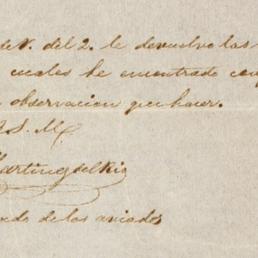 de V. del 2. le devuelvo las
cuales he encontrado con
observacion que hacer.
S. M.
Martinez del Rio
de los aviados